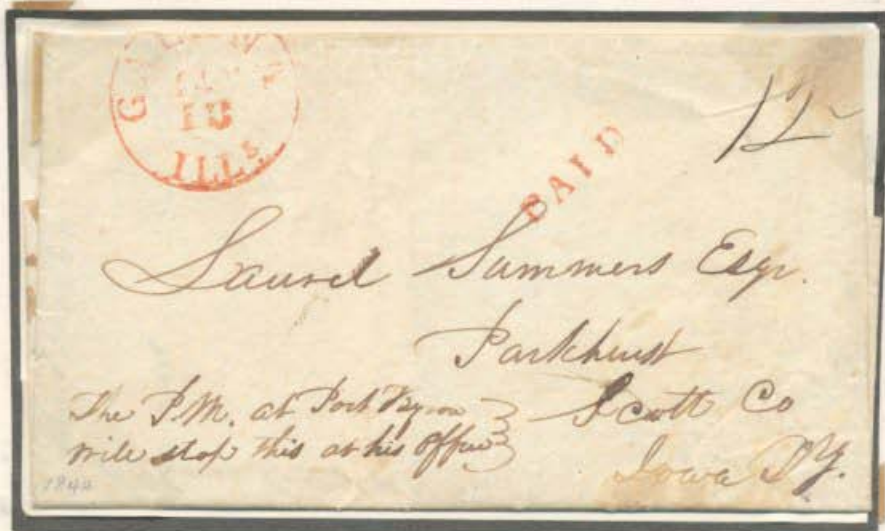 ILLs
PAID
12
Laurel Summers Esqr.
Parkhurst
Scott Co
Iowa Ty.
The P.M. at Port Byron
will stop this at his office